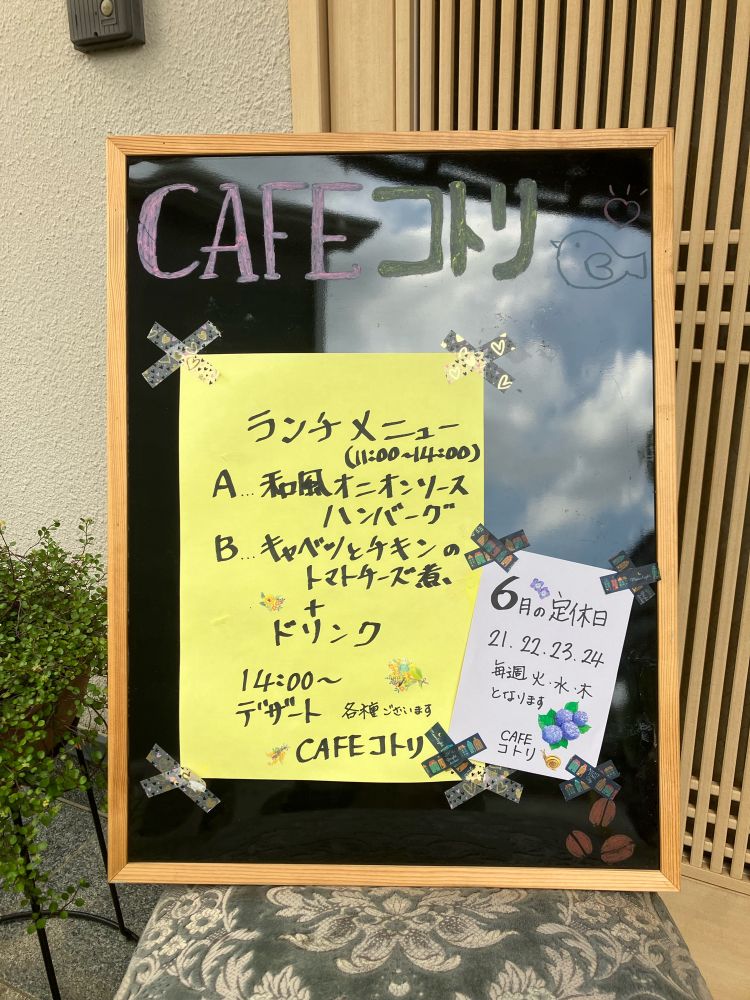 CAFEコトリ
ランチメニュー
(11:00~14:00)
A...和風オニオンソース
ハンバーグ
B...キャベツとチキンの
トマトチーズ煮
+
ドリンク
14:00~
デザート 各種ございます
CAFEコトリ
6月の定休日
21.22.23.24
毎週火・水・木
となります
CAFE
コトリ